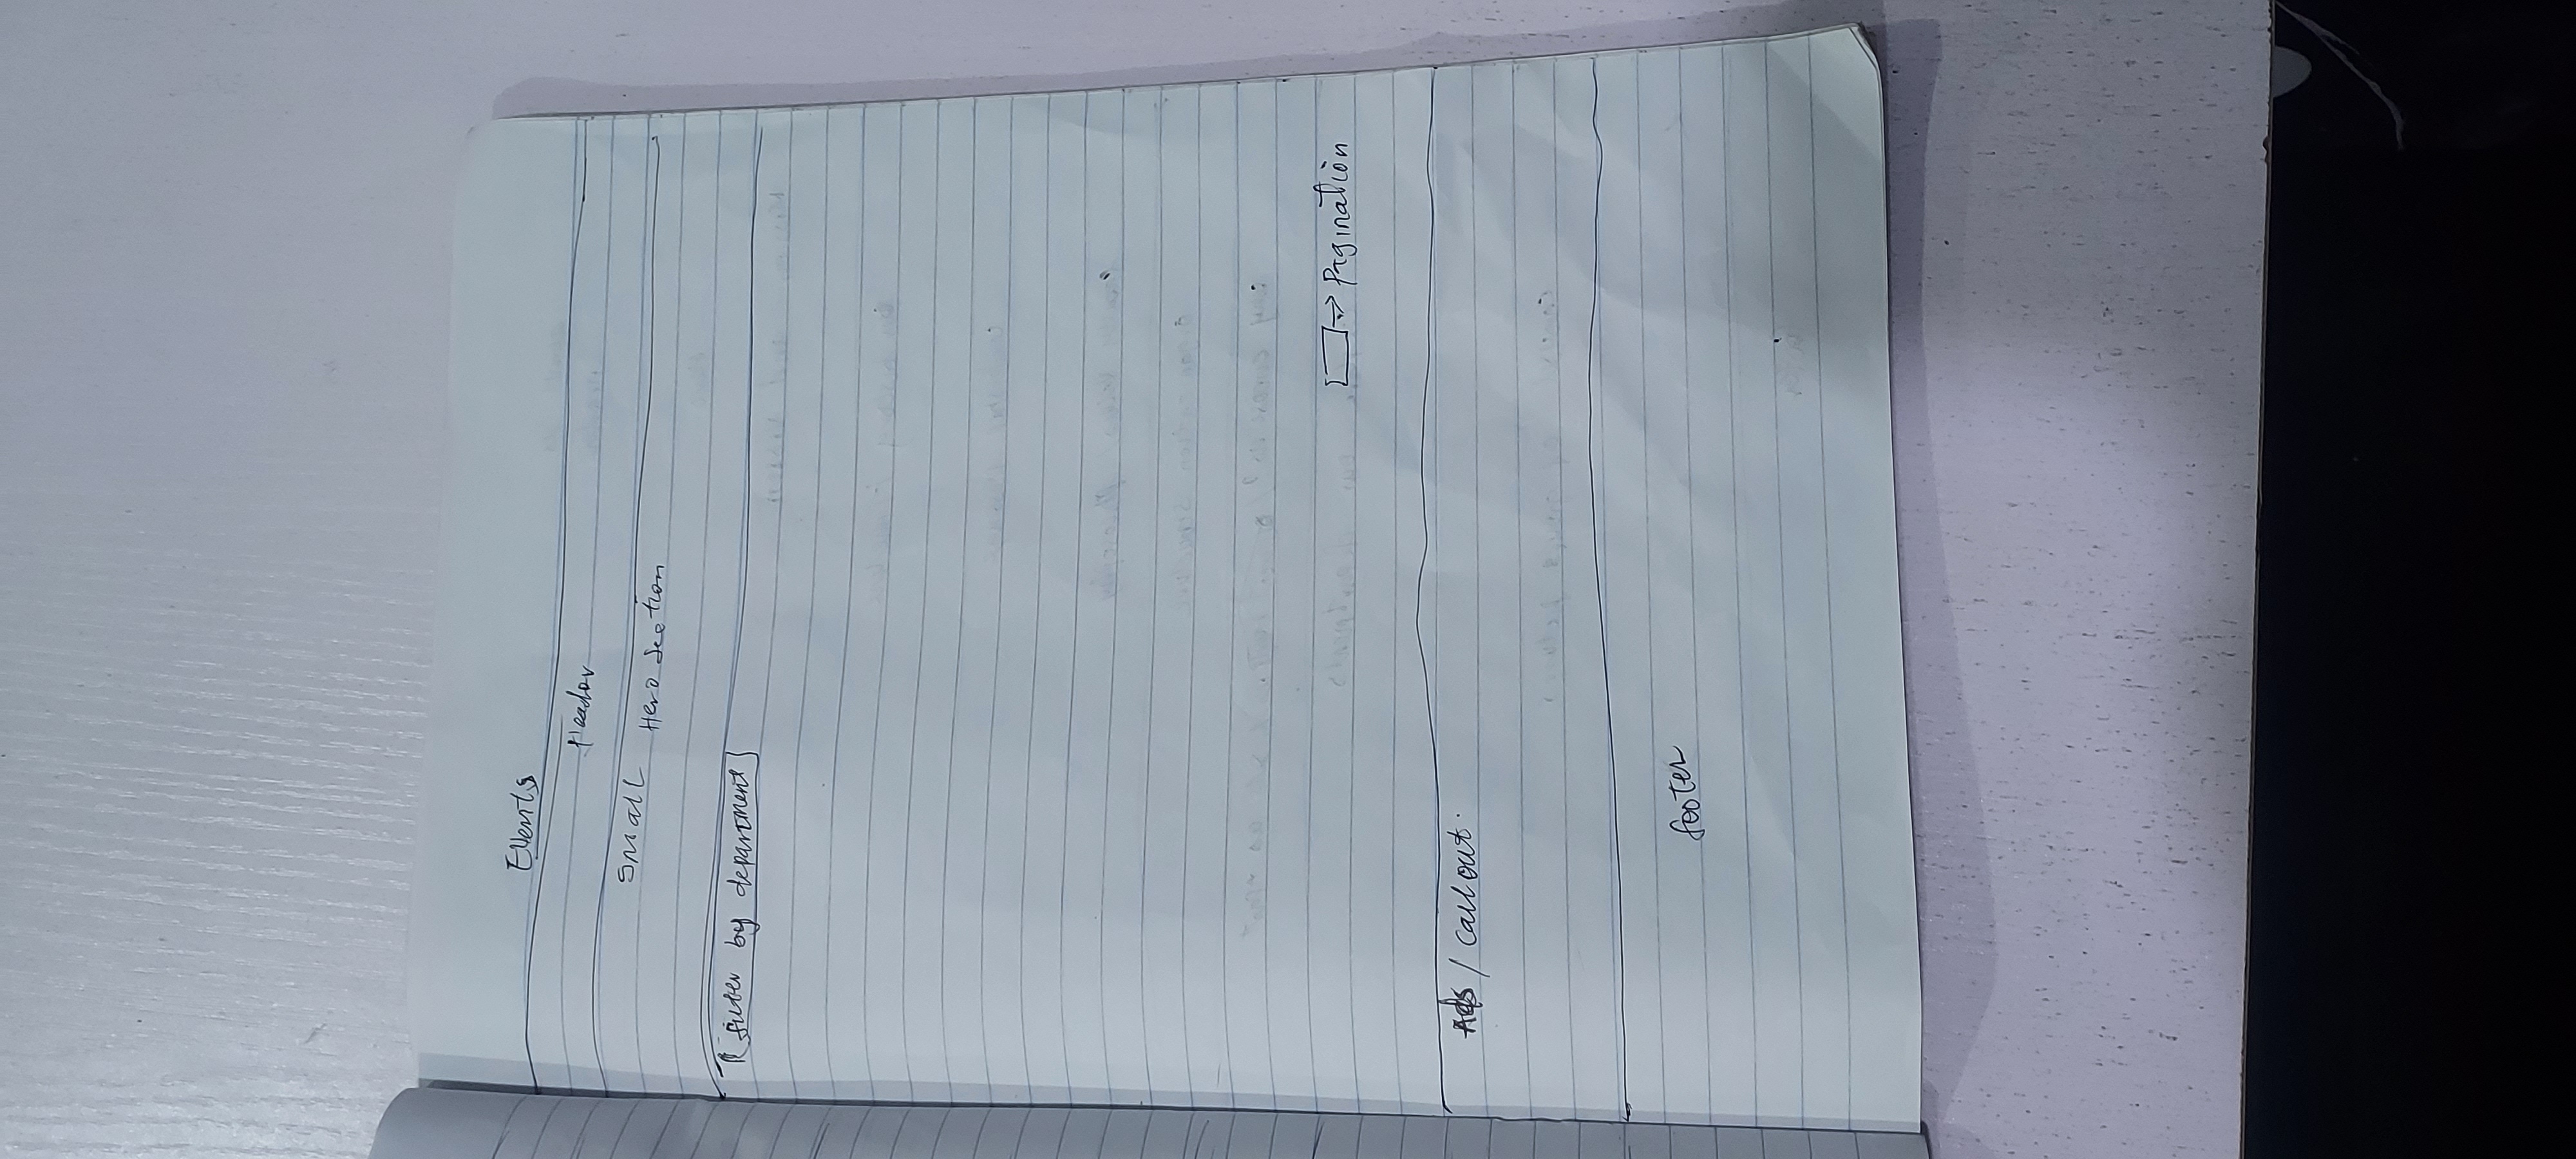 Events
Header
Small Hero Section
filter by department
→ Pagination
Ads / Callout.
footer